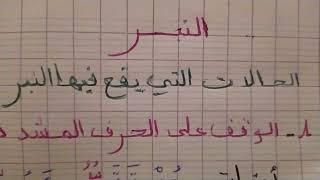 النبر
الحالات التي يقع فيها النبر
1- الوقف على الحرف المشدد